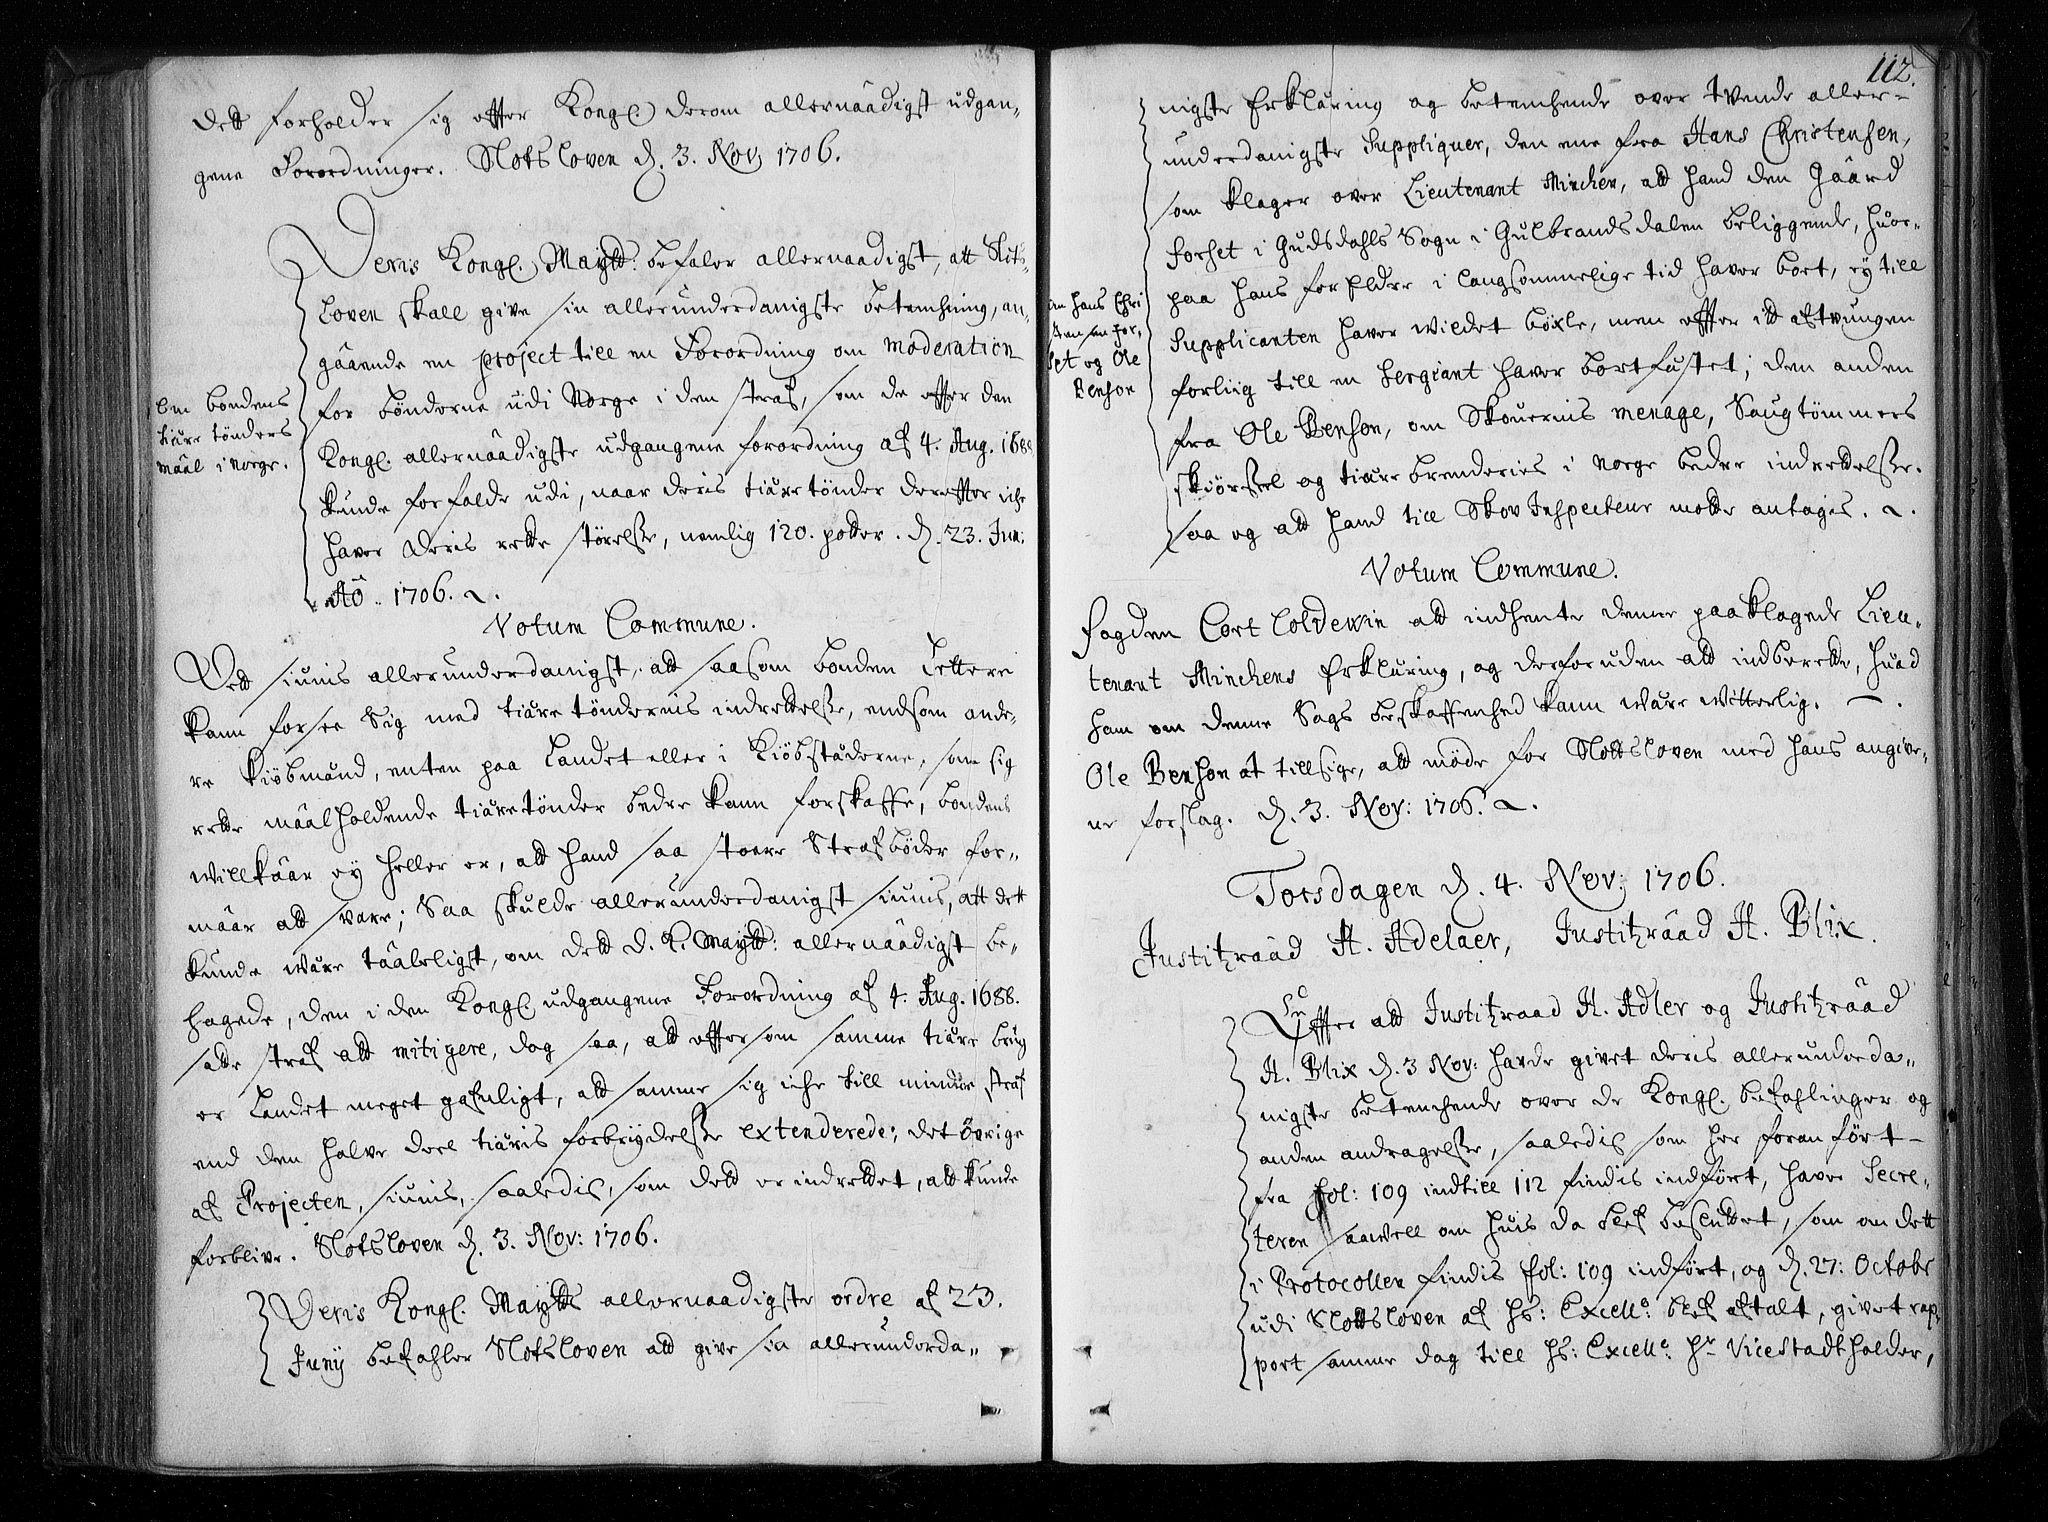 dett forholder sig effter Kongl. derom allernåådigst udgan-
gene Forordninger. Slotsloven d. 3. Nov. 1706.
Deris Kongl. Maytt: befaler allernaadigst, att Slots-
Loven skall give sin allerunderdanigste betenchning, an-
gåaende en project till en Forordning om moderation
for bönderne udi Norge i den straf, som de effter den
Kongl. allernåådigste udgangene forordning af 4. Aug. 1688
kunde forfalde udi, naar deris tiære tönder dereffter iche
haver deris rette störelsse, nemlig 120. potter. d. 23. Jun:
Aō. 1706.
Om bondens
tiære tönders
måål i Norge.
Votum Commune.
Dett siunis allerunderdanigst, att saasom bonden lettere
kann forsee sig med tiære töndernis indrettelsse, endsom ande-
re kiöbmænd, enten paa Landet eller i Kiöbstæderne, som sig
rette måålholdende tiæretönder bedre kann forskaffe, bondens
willkåår ey heller er, att hand saa stoere Strafböder for-
måår att svare; Saa skulde allerunderdanigst siunis, att dett
kunde wære tååleligst, om dett D. K. Maytt: allernåådigst be-
hagede, den i den Kongl. udgangene Forordning af 4. Aug. 1688.
satte straf att mitigere, dog saa, att effter som samme tiære brug
er Landet meget gafnligt, att samme sig iche till mindre straf
end den halve deel tiæris forbrydelsse extenderede; det övrige
af Projecten, siunis, saaledis, som dett er indrettet, att kunde
forblive. Slotsloven d. 3. Nov: 1706.
Deris Kongl. Maytts allernaadigste ordre af 23.
Junij befahler Slotsloven att give sin allerunderda-
112.
nigste Erklæring og betenchende over tvende aller-
underdanigste Suppliquer, den ene fra Hans Christensen,
som klager over Lieutenant Minchen, att hand den Gåård
Forset i Gudsdahls Sogn i Gulbrandsdalen beliggende, huor-
paa hans forældre i langsommelige tid haver boet, ey till
Supplicanten haver wildet böxle, men effter itt aftvungen
forliig till en Sergiant haver bortfæstet; den anden
fra Ole Benson, om Skouernis menage, Saugtömmers
skiörssel og tiære brenderies i Norge bedre indrettelsse.
saa og att hand till Skov Inspecteur motte antages.
om Hans Chri
stensen For-
set og Ole
Benson
Votum Commune.
Fogden Cort Coldewin att indhente denne paaklagede Lieu-
tenant Minchens Erklæring, og desforuden att indberette, huad
ham om denne Sags beskaffenhed kann wære witterlig.
Ole Benson at tillsige, att möde for Slottsloven med hans angive-
ne forslag. d. 3. Nov: 1706.
Torsdagen d. 4. Nov: 1706.
Justitzrååd H. Adelaer, Justitzrååd H. Blix.
Effter att Justitzraad H. Adler og Justitzrååd
H. Blix d. 3 Nov: havde givet deris allerunderda-
nigste betenchende over de Kongl. befahlinger og
anden andragelsse, saaledis som her foran fört
fra fol: 109 indtill 112 findis indfört, haver Secre-
teren saavell om huis da blef besluttet, som om dett
i Protocollen findis fol: 109 indfört, og d. 27: Octobr
udi Slottsloven af hs: Excell: blef aftalt, givet rap-
port samme dag till hs: Excell: Hr Vicestadtholder,